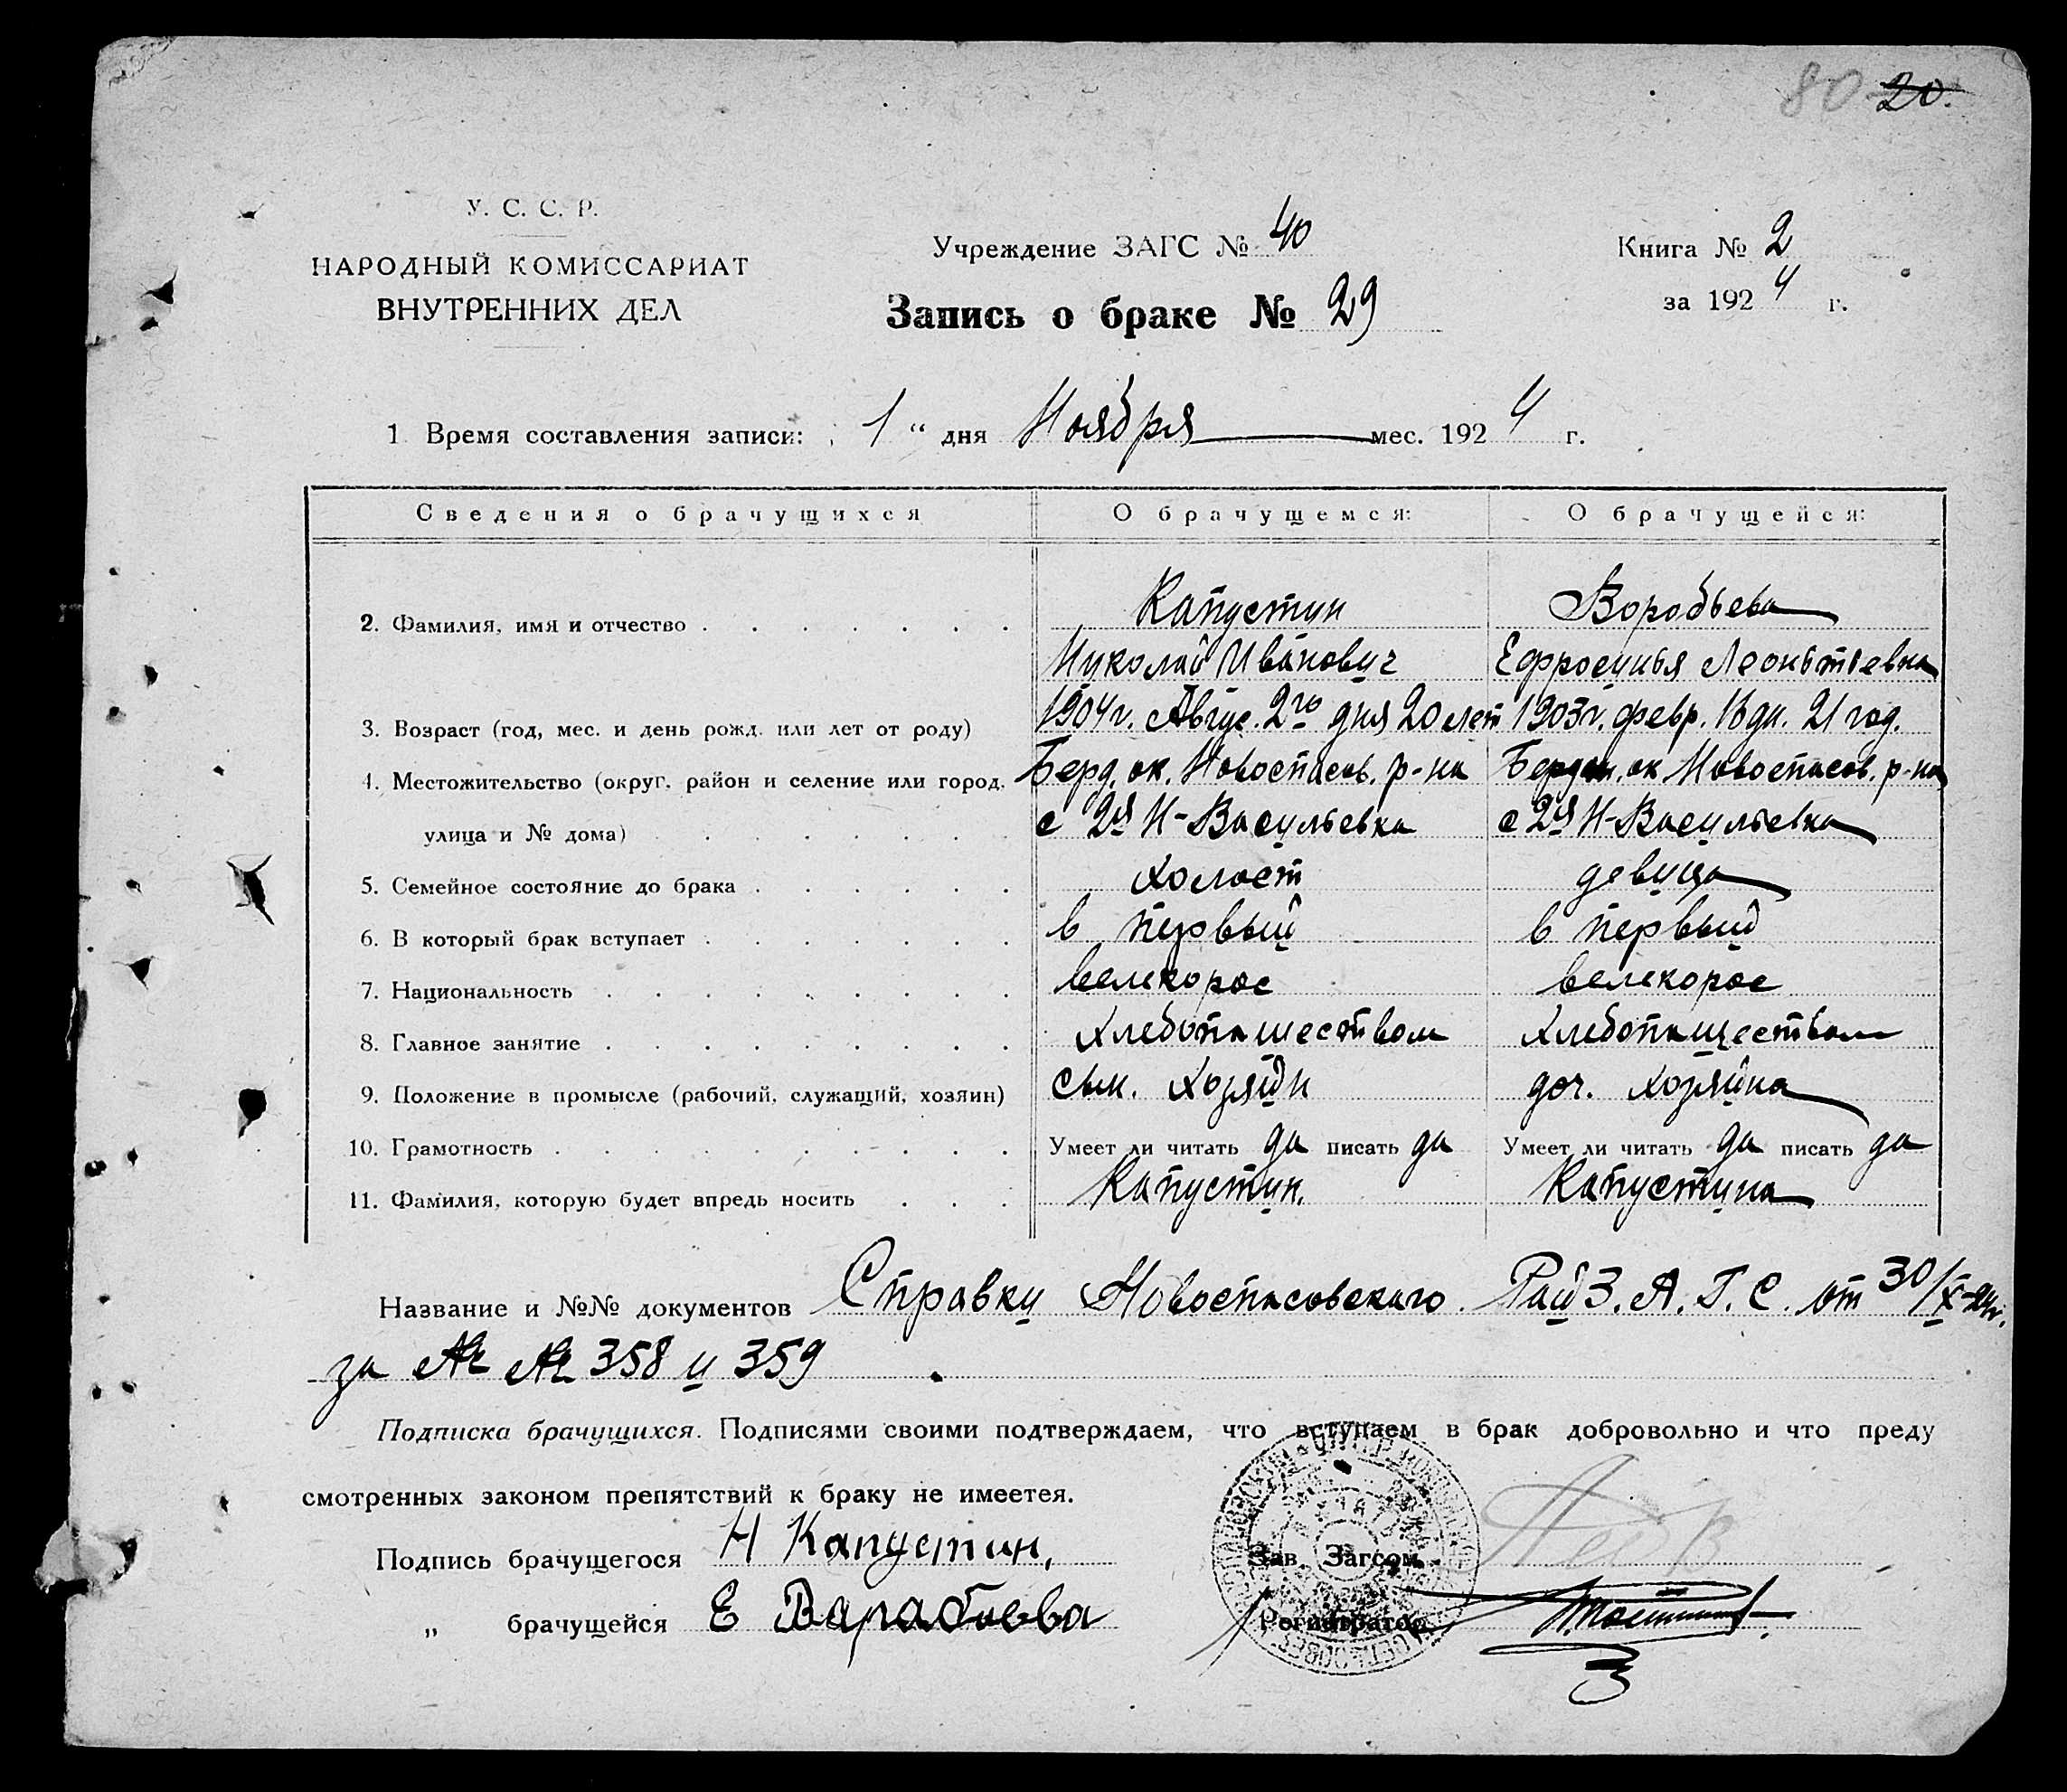 80 20.
У. С. С. Р.
НАРОДНЫЙ КОМИССАРИАТ
ВНУТРЕННИХ ДЕЛ
Учреждение ЗАГС № 40
Запись о браке № 29
Книга № 2
за 1924 г.
1 Время составления записи: 1 " дня Ноября мес. 1924 г.
Сведения о брачущихся О брачущемся: О брачущейся:
2. Фамилия, имя и отчество Капустин Воробьева
Николай Иванович Ефросинья Леоньтьевна
3. Возраст (год, мес. и день рожд. или лет от роду) 1904 г. Авгус. 2го дня 20 лет 1903 г. февр. 16 дн. 21 год.
4. Местожительство (округ, район и селение или город, Берд. ок. Новоспасов. р-на Бердян. ок. Новоспасов. р-на
улица и № дома) с 2я Н-Васильевка с 2я Н-Васильевка
5. Семейное состояние до брака холост девица
6. В который брак вступает в первый в первый
7. Национальность велекорос велекорос
8. Главное занятие хлебопашеством хлебопашеством
9. Положение в промысле (рабочий, служащий, хозяин) сын. хозяйн доч. хозяйна
10. Грамотность Умеет ли читать да писать да Умеет ли читать да писать да
11. Фамилия, которую будет впредь носить Капустин. Капустина
Название и №№ документов Справки Новоспасовского Рай З. А. Г. С. от 30/X-24г.
за № № 358 и 359
Подписка брачущихся. Подписями своими подтверждаем, что вступаем в брак добровольно и что преду
смотренных законом препятствий к браку не имеется.
Подпись брачущегося Н Капустин,
Зав. Загсом
„ брачущейся Е Варабьева
Регистратор